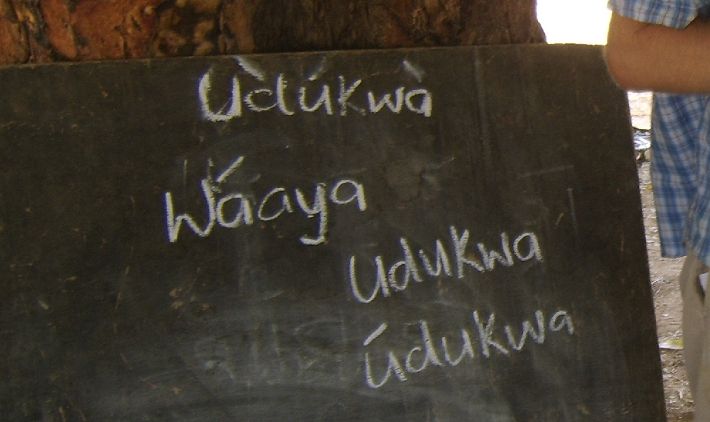 Ùdúkwà
Wáaya
udukwa
údukwa